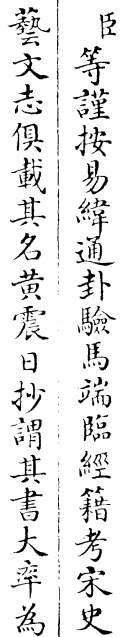 臣等謹按易緯通卦驗馬端臨經籍考宋史
藝文志俱載其名黄震日抄謂其書大率為